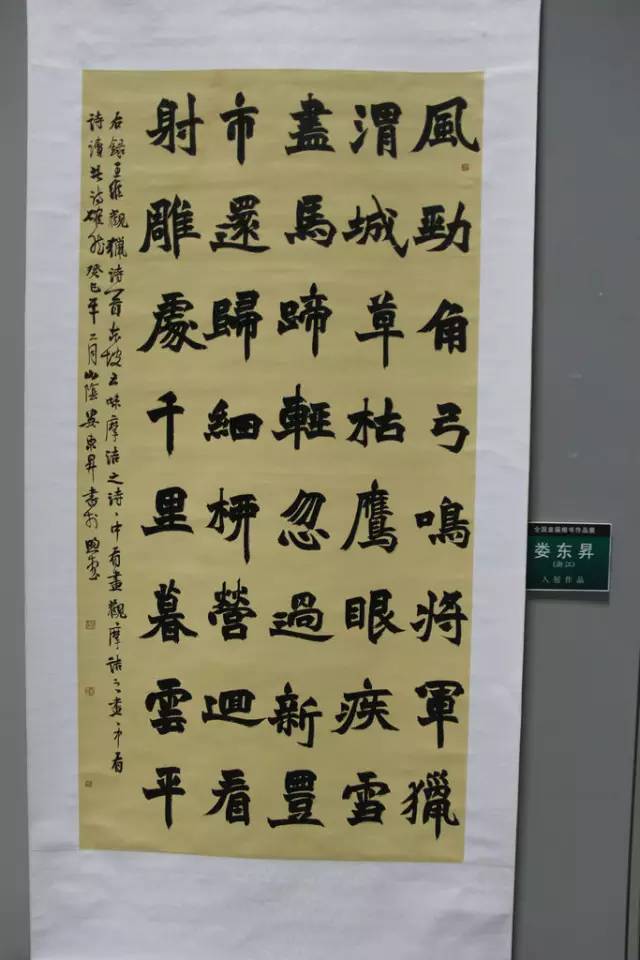 風勁角弓鳴將軍獵
渭城草枯鷹眼疾雪
盡馬蹄輕忽過新豊
市還歸細柳營迴看
射雕處千里暮雲平
右錄王維觀獵詩一首東坡云味摩詰之詩中有畫觀摩詰之畫中有
詩讀其詩確然癸巳年二月山陰娄東昇書於
全国首届楷书作品展
娄东昇
(浙江)
入展作品